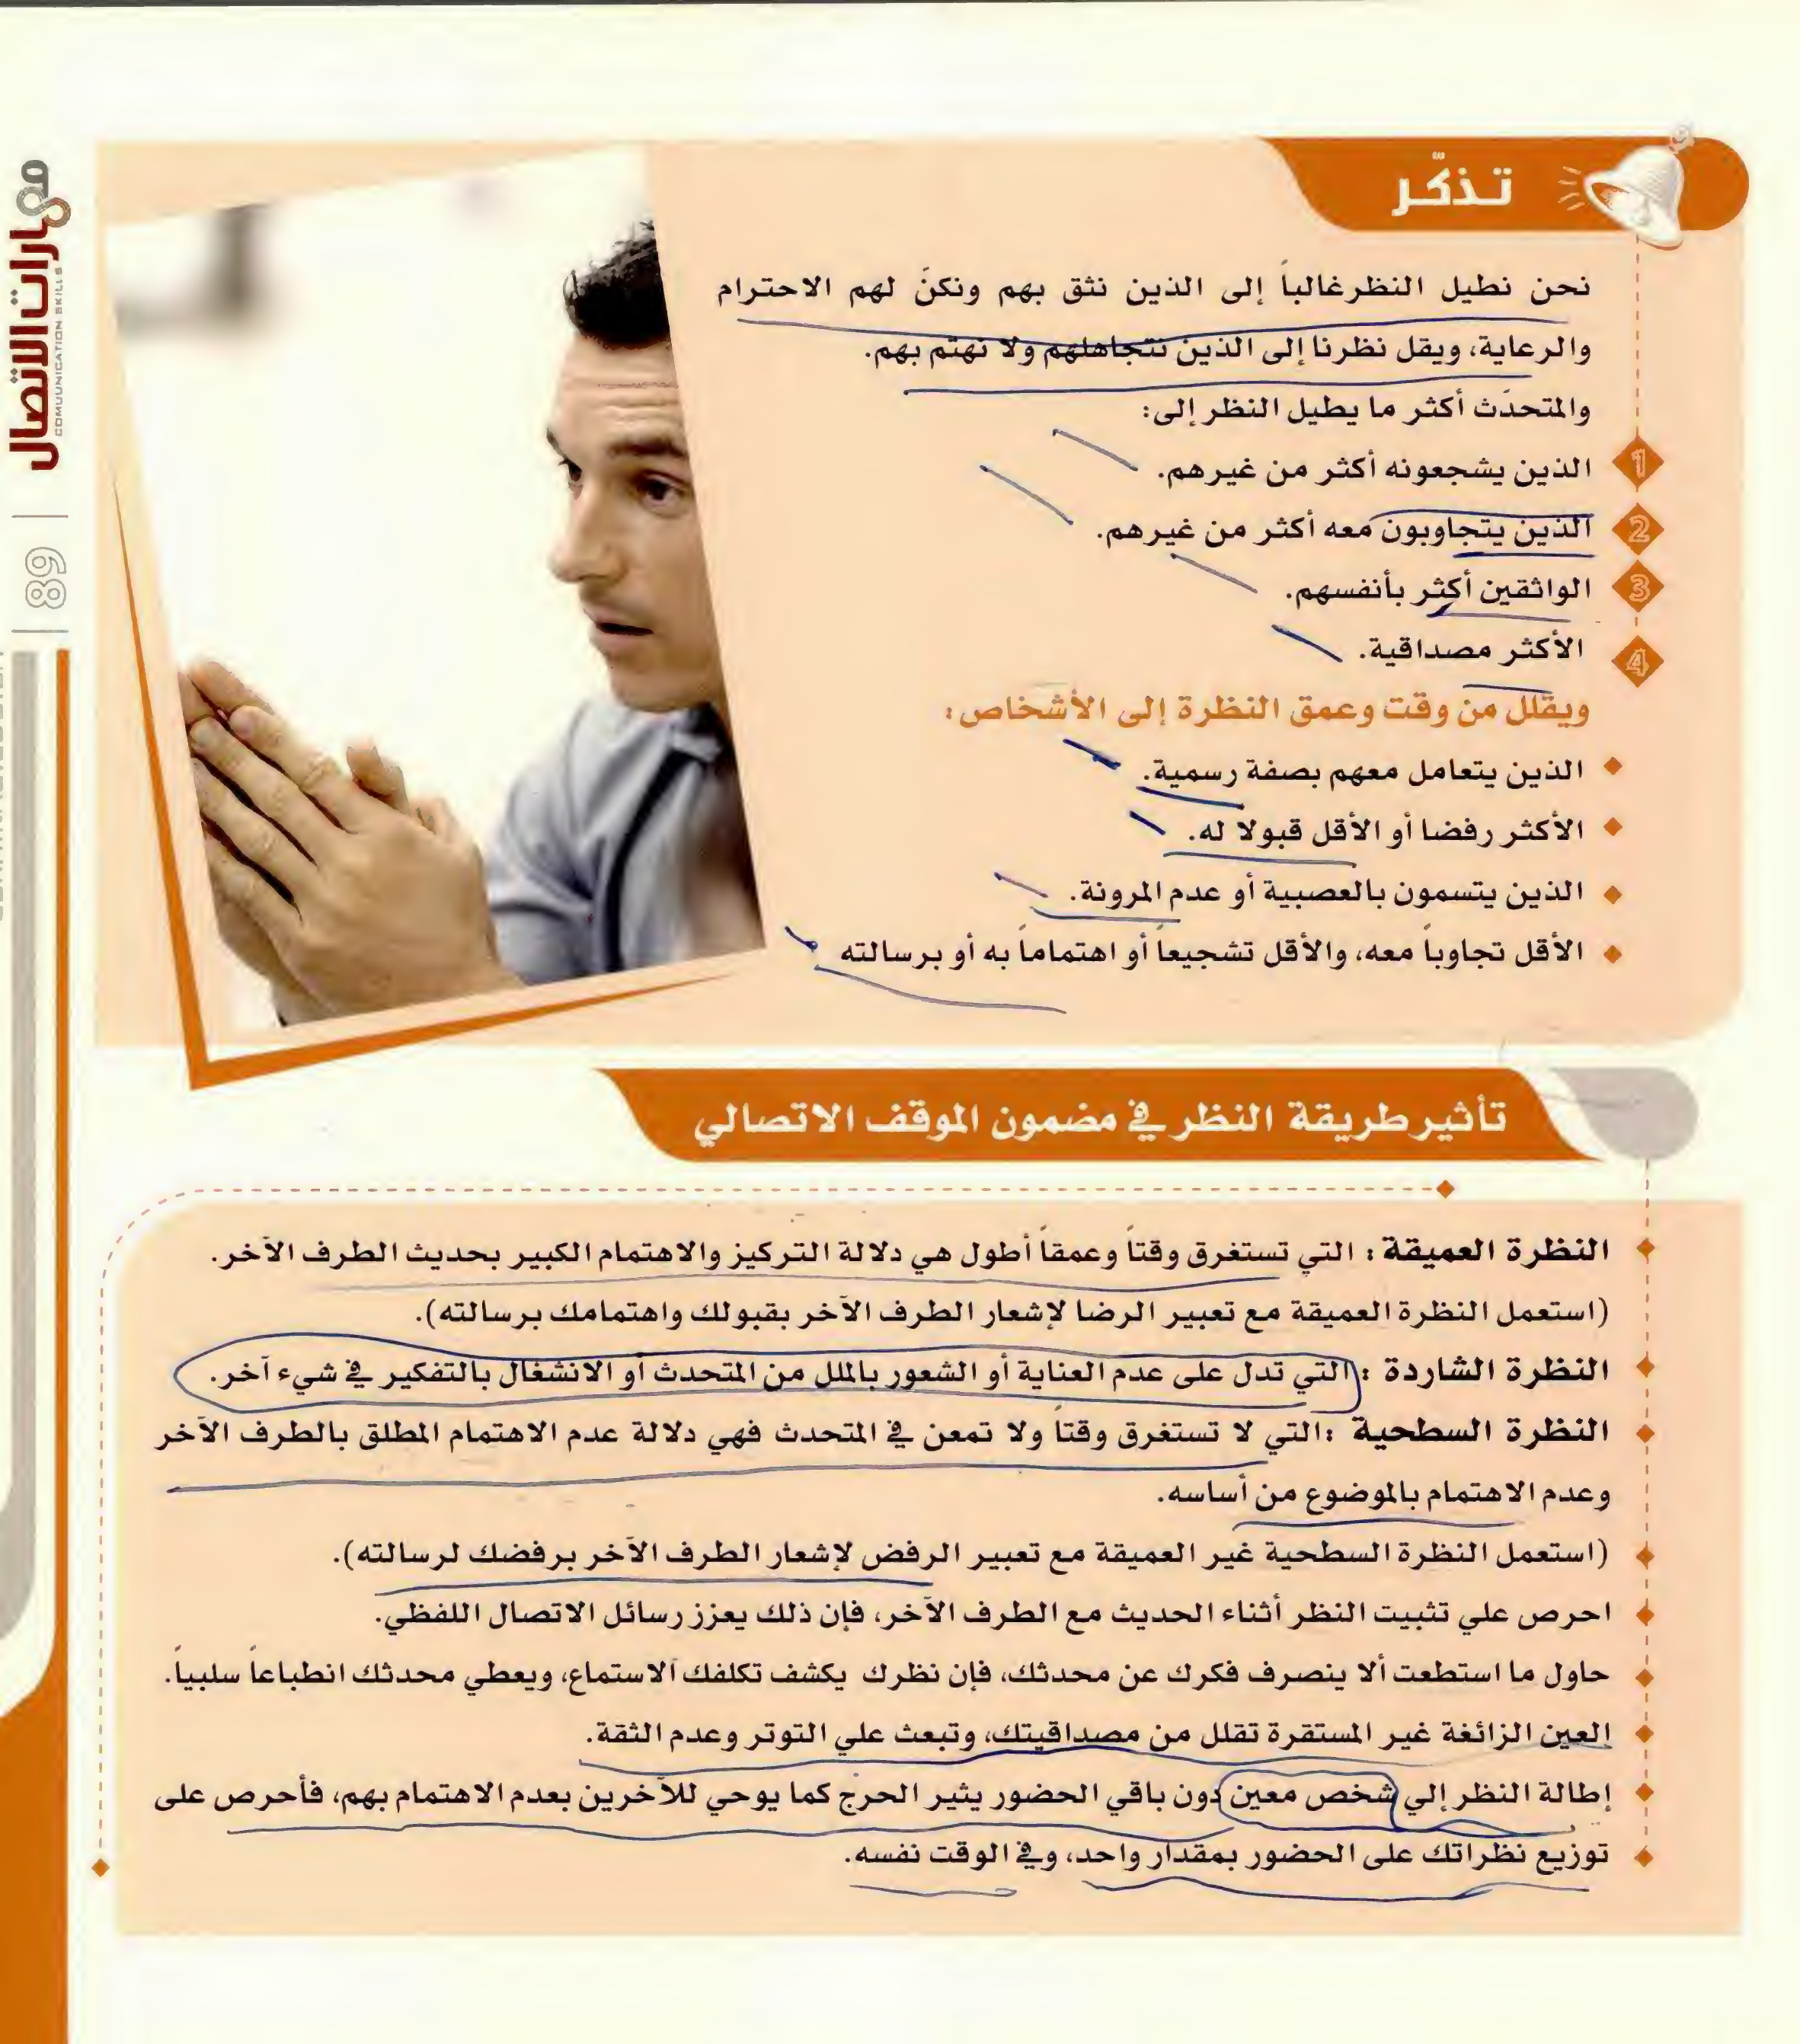 تذكّر
نحن نطيل النظر غالباً إلى الذين نثق بهم ونكنّ لهم الاحترام
والرعاية، ويقل نظرنا إلى الذين نتجاهلهم ولا نهتم بهم.
والمتحدّث أكثر ما يطيل النظر إلى:
1 الذين يشجعونه أكثر من غيرهم.
2 الذين يتجاوبون معه أكثر من غيرهم.
3 الواثقين أكثر بأنفسهم.
4 الأكثر مصداقية.
ويقلل من وقت وعمق النظرة إلى الأشخاص:
الذين يتعامل معهم بصفة رسمية.
الأكثر رفضا أو الأقل قبولا له.
الذين يتسمون بالعصبية أو عدم المرونة.
الأقل تجاوباً معه، والأقل تشجيعاً أو اهتماماً به أو برسالته
تأثير طريقة النظر في مضمون الموقف الاتصالي
النظرة العميقة: التي تستغرق وقتاً وعمقاً أطول هي دلالة التركيز والاهتمام الكبير بحديث الطرف الآخر.
(استعمل النظرة العميقة مع تعبير الرضا لإشعار الطرف الآخر بقبولك واهتمامك برسالته).
النظرة الشاردة: التي تدل على عدم العناية أو الشعور بالملل من المتحدث أو الانشغال بالتفكير في شيء آخر.
النظرة السطحية: التي لا تستغرق وقتاً ولا تمعن في المتحدث فهي دلالة عدم الاهتمام المطلق بالطرف الآخر
وعدم الاهتمام بالموضوع من أساسه.
(استعمل النظرة السطحية غير العميقة مع تعبير الرفض لإشعار الطرف الآخر برفضك لرسالته).
احرص علي تثبيت النظر أثناء الحديث مع الطرف الآخر، فإن ذلك يعزز رسائل الاتصال اللفظي.
حاول ما استطعت ألا ينصرف فكرك عن محدثك، فإن نظرك يكشف تكلفك الاستماع، ويعطي محدثك انطباعاً سلبياً.
العين الزائغة غير المستقرة تقلل من مصداقيتك، وتبعث علي التوتر وعدم الثقة.
إطالة النظر إلي شخص معين دون باقي الحضور يثير الحرج كما يوحي للآخرين بعدم الاهتمام بهم، فأحرص على
توزيع نظراتك على الحضور بمقدار واحد، وفي الوقت نفسه.
مهارات الاتصال
COMUUNICATION SKILLS
89